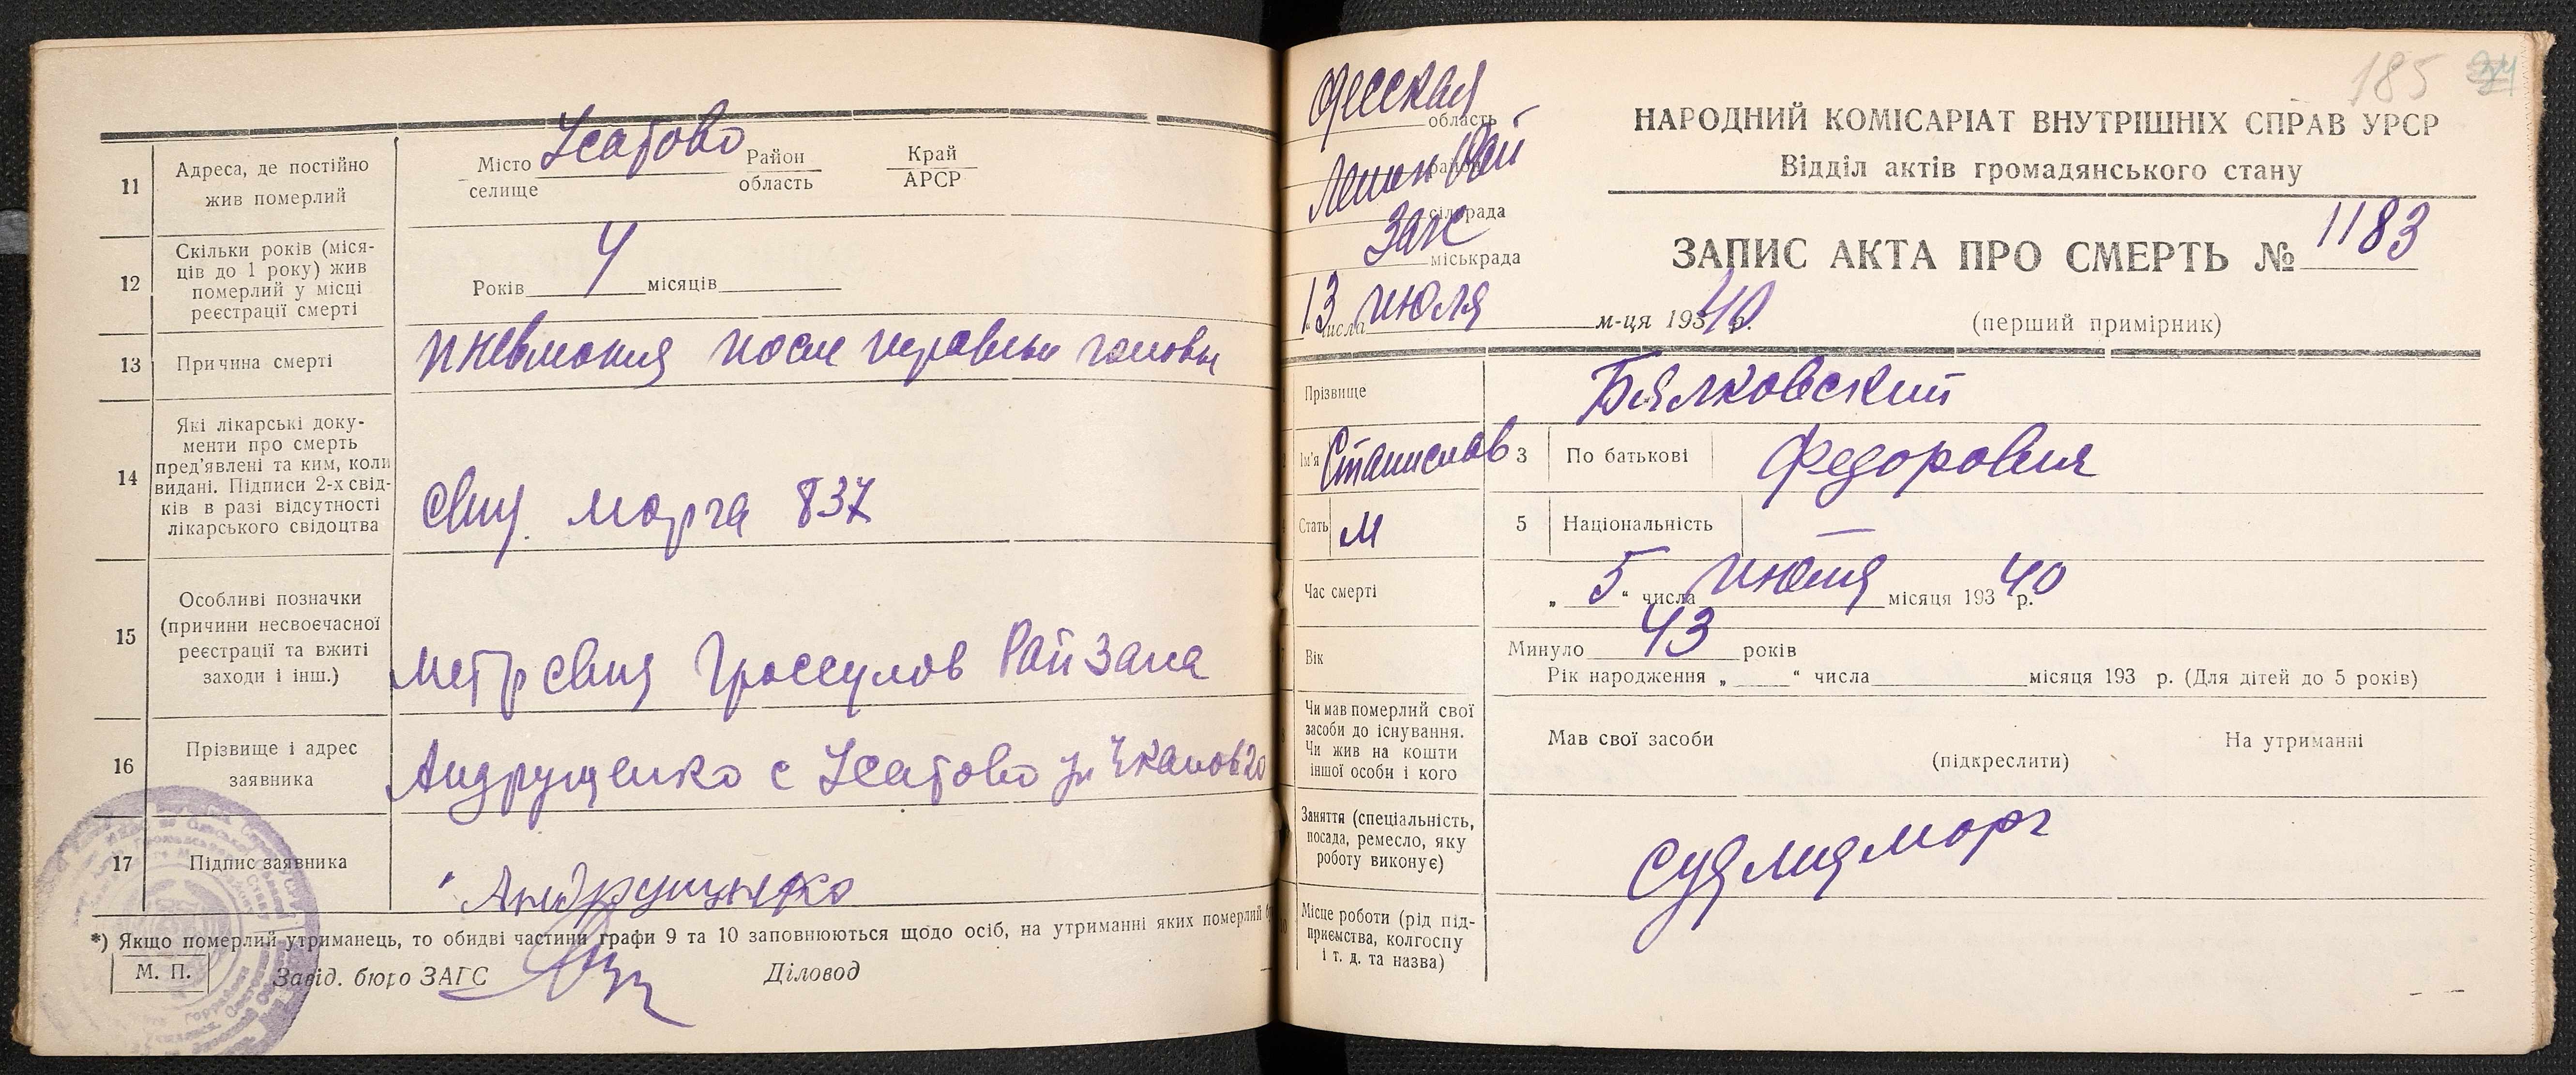 11
Адреса, де постійно
жив померлий
Місто
селище
Усатово
Район
область
Край
АРСР
12
Скільки років (міся-
ців до 1 року) жив
померлий у місці
реєстрації смерті
Років 4 місяців
13
Причина смерті
пневмония после травмы головы
14
Які лікарські доку-
менти про смерть
пред'явлені та ким, коли
видані. Підписи 2-х свід-
ків в разі відсутності
лікарського свідоцтва
Свид. морга 837
15
Особливі позначки
(причини несвоєчасної
реєстрації та вжиті
заходи і інш.)
Гроссулов Рай Загса
16
Прізвище і адрес
заявника
Андрущенко с Усатово ул Чкалов 20
17
Підпис заявника
Андрущенко
*) Якщо померлий утриманець, то обидві частини графи 9 та 10 заповнюються щодо осіб, на утриманні яких померлий
М. П.
Завід. бюро ЗАГС
Діловод
185
Одесская
область
Ленин Рай
район
сільрада
Загс
міськрада
"13 числа июля м-ця 1940 р.
НАРОДНИЙ КОМІСАРІАТ ВНУТРІШНІХ СПРАВ УРСР
Відділ актів громадянського стану
ЗАПИС АКТА ПРО СМЕРТЬ № 1183
(перший примірник)
Прізвище
Бялковский
Ім'я
Станислав
3
По батькові
Федорович
Стать
М
5
Національність
—
Час смерті
„ 5 " числа июля місяця 193 40 р.
Вік
Минуло 43 років
Рік народження „ " числа місяця 193 р. (Для дітей до 5 років)
Чи мав померлий свої
засоби до існування.
Чи жив на кошти
іншої особи і кого
Мав свої засоби
(підкреслити)
На утриманні
Заняття (спеціальність,
посада, ремесло, яку
роботу виконує)
Судмедморг
Місце роботи (рід під-
приємства, колгоспу
і т. д. та назва)